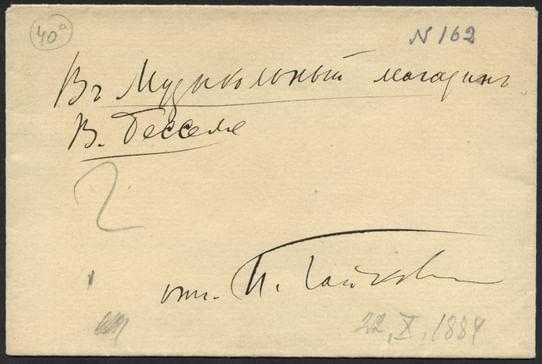 40a
N 162
Въ Музыкальный магазинъ
В. Бесселя
2
отъ П. Чайковск
22, X, 1884